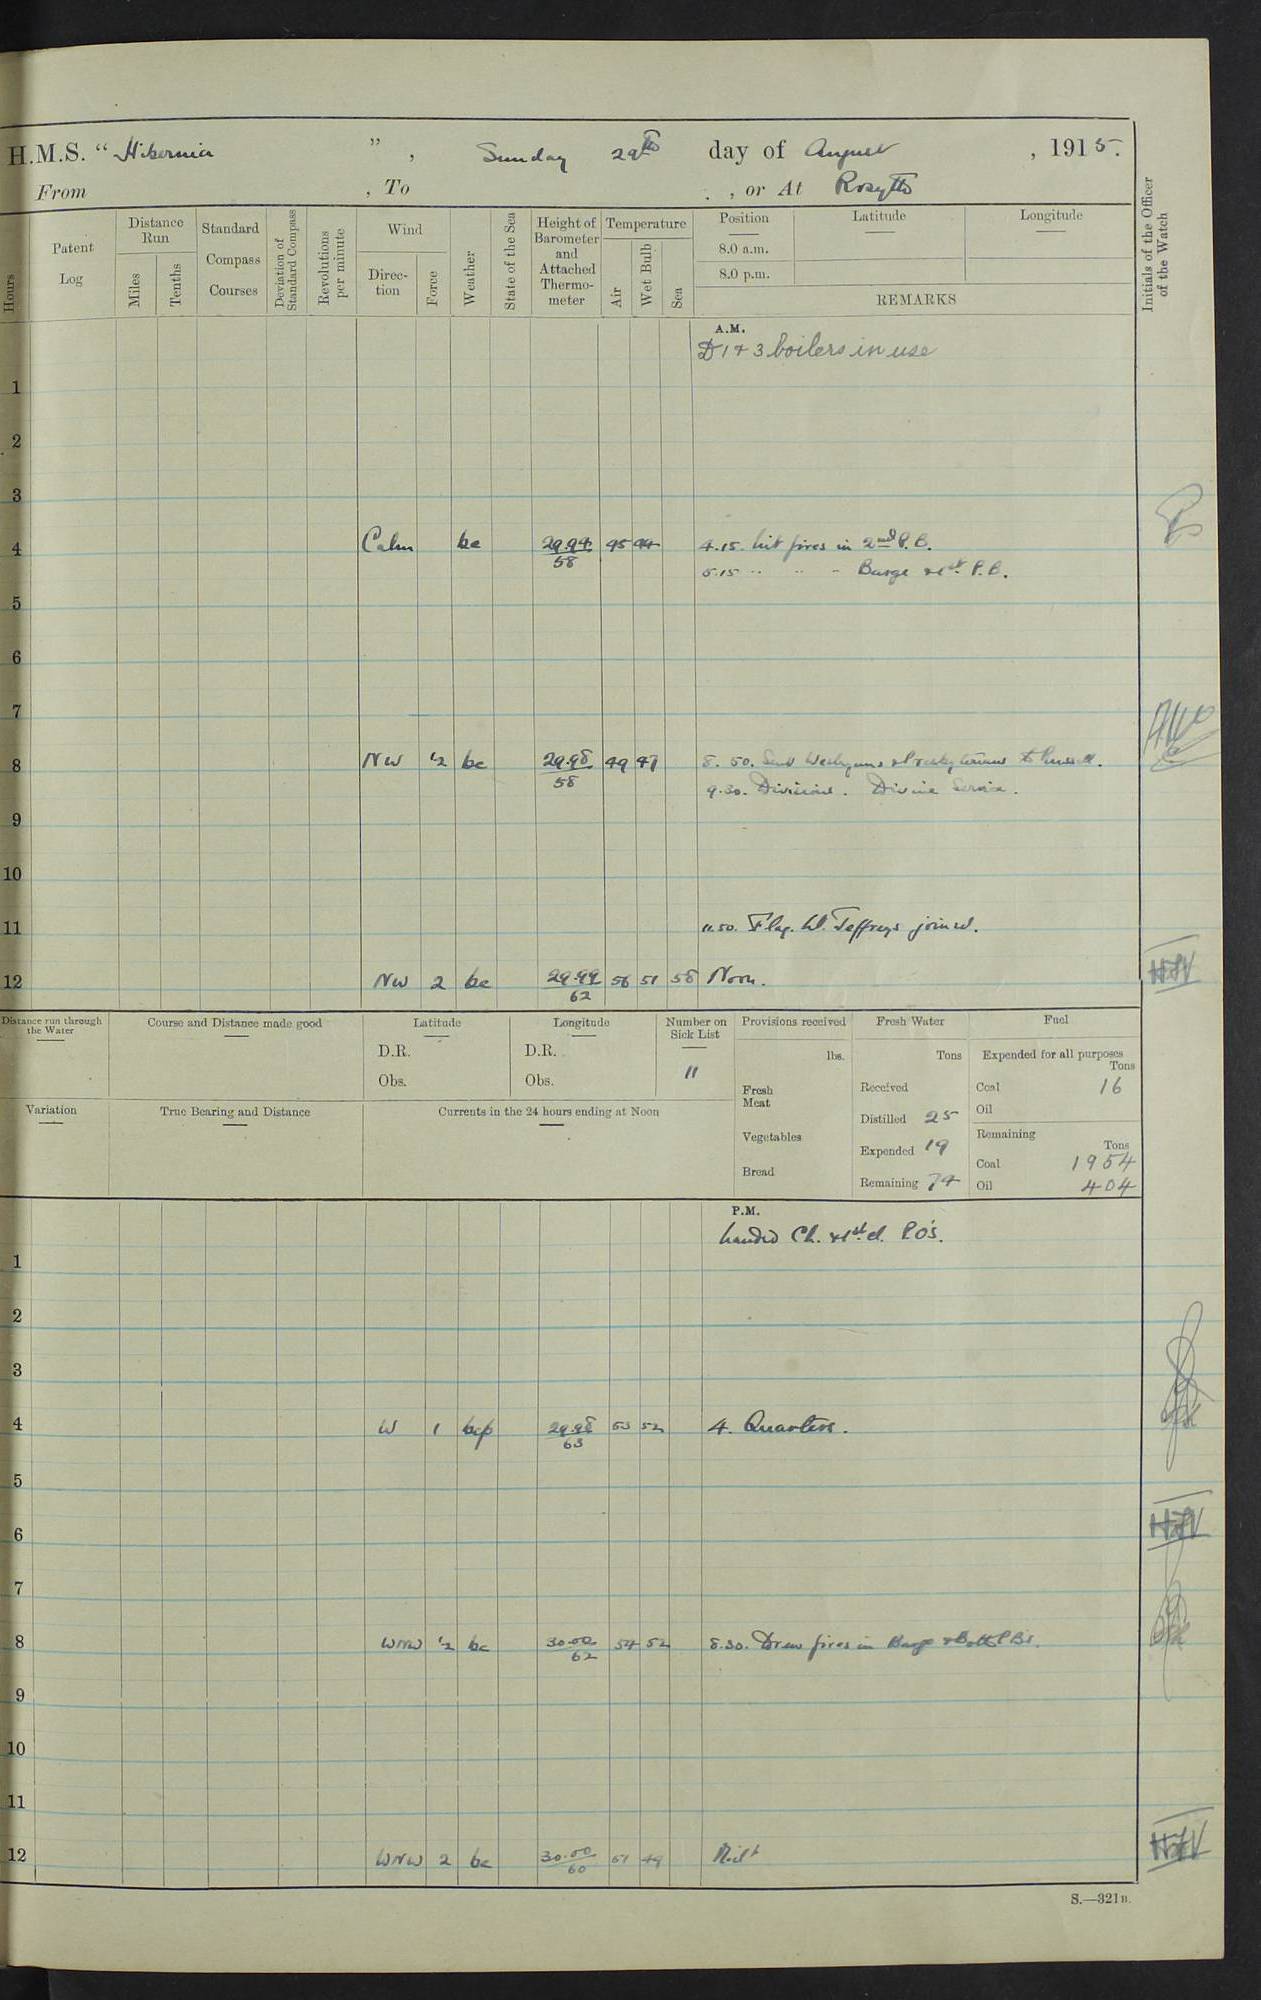 H.M.S. “ Hibernia ” , Sunday 29th day of August , 1915.
From , To , or At Rosyth
Hours
Patent Log
Distance Run
Miles
Tenths
Standard Compass Courses
Deviation of Standard Compass
Revolutions per minute
Wind
Direc-tion
Force
Weather
State of the Sea
Height of Barometer and Attached Thermo-meter
Temperature
Air
Wet Bulb
Sea
Position
8.0 a.m.
8.0 p.m.
Latitude
Longitude
REMARKS
Initials of the Officer of the Watch
A.M.
D 1 + 3 boilers in use
1
2
3
4 Calm bc 29.94 45 44 4.15. lit fires in 2nd P.B.
58
5.15 .. .. - Barge & 1st P.B.
5
6
7
8 NW ½ bc 29.98 49 47 8.50. Sent Wesleyans & Presbyterians to Russell.
58
9.30. Divisions. Divine Service.
9
10
11 11.50. Flag. W. Jeffreys joined.
12 NW 2 bc 29.99 56 51 58 Noon.
62
Distance run through the Water
Course and Distance made good
Latitude
D.R.
Obs.
Longitude
D.R.
Obs.
Number on Sick List
11
Provisions received
lbs.
Fresh Meat
Vegetables
Bread
Fresh Water
Tons
Received
Distilled 25
Expended 19
Remaining 74
Fuel
Expended for all purposes
Tons
Coal 16
Oil
Remaining
Tons
Coal 1954
Oil 404
Variation
True Bearing and Distance
Currents in the 24 hours ending at Noon
P.M.
landed Ch. & 1st cl. P.O's.
1
2
3
4 W 1 bcp 29.98 53 52 4. Quarters.
63
5
6
7
8 WNW ½ bc 30.00 54 52 8.30. Drew fires in Barge & Both P.B's.
62
9
10
11
12 WNW 2 bc 30.00 51 49 Midt
60
S.—321B.